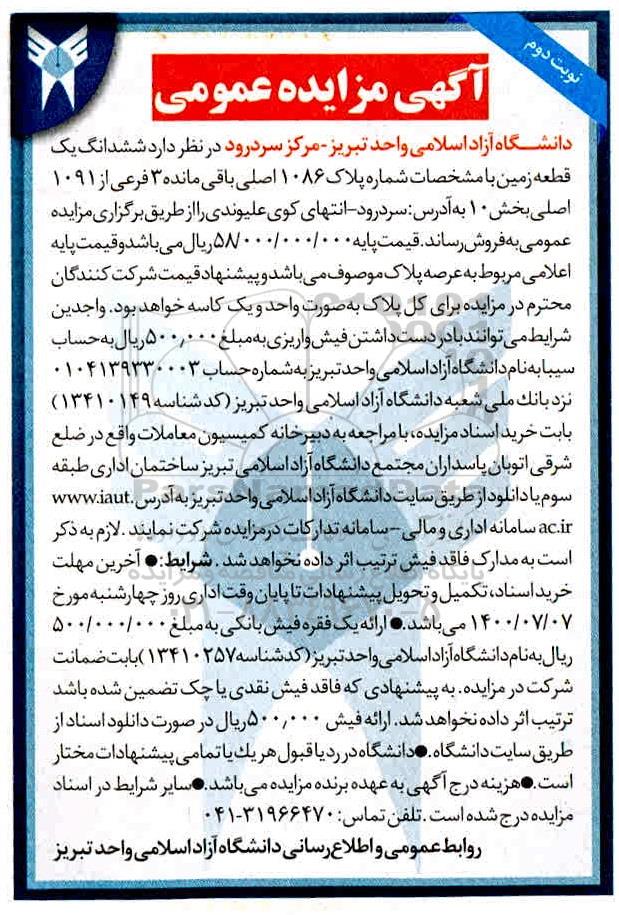 نوبت دوم
آگهی مزایده عمومی
دانشگاه آزاد اسلامی واحد تبریز - مرکز سردرود در نظر دارد ششدانگ یک
قطعه زمین با مشخصات شماره پلاک ۱۰۸۶ اصلی باقی مانده ۳ فرعی از ۱۰۹۱
اصلی بخش ۱۰ به آدرس: سردرود-انتهای کوی علیوندی را از طریق برگزاری مزایده
عمومی به فروش رساند. قیمت پایه ۵۸/۰۰۰/۰۰۰/۰۰۰ ریال می باشد و قیمت پایه
اعلامی مربوط به عرصه پلاک موصوف می باشد و پیشنهاد قیمت شرکت کنندگان
محترم در مزایده برای کل پلاک به صورت واحد و یک کاسه خواهد بود. واجدین
شرایط می توانند با در دست داشتن فیش واریزی به مبلغ ۵۰۰٫۰۰۰ ریال به حساب
سیبا به نام دانشگاه آزاد اسلامی واحد تبریز به شماره حساب ۰۱۰۴۱۳۹۳۳۰۰۰۳
نزد بانک ملی شعبه دانشگاه آزاد اسلامی واحد تبریز (کد شناسه ۱۳۴۱۰۱۴۹)
بابت خرید اسناد مزایده، با مراجعه به دبیرخانه کمیسیون معاملات واقع در ضلع
شرقی اتوبان پاسداران مجتمع دانشگاه آزاد اسلامی تبریز ساختمان اداری طبقه
سوم یا دانلود از طریق سایت دانشگاه آزاد اسلامی واحد تبریز به آدرس www.iaut.
ac.ir سامانه اداری و مالی – سامانه تدارکات در مزایده شرکت نمایند. لازم به ذکر
است به مدارک فاقد فیش ترتیب اثر داده نخواهد شد. شرایط: ● آخرین مهلت
خرید اسناد، تکمیل و تحویل پیشنهادات تا پایان وقت اداری روز چهارشنبه مورخ
۱۴۰۰/۰۷/۰۷ می باشد. ● ارائه یک فقره فیش بانکی به مبلغ ۵۰۰/۰۰۰/۰۰۰
ریال به نام دانشگاه آزاد اسلامی واحد تبریز (کد شناسه ۱۳۴۱۰۲۵۷) بابت ضمانت
شرکت در مزایده. به پیشنهادی که فاقد فیش نقدی یا چک تضمین شده باشد
ترتیب اثر داده نخواهد شد. ارائه فیش ۵۰۰٫۰۰۰ ریال در صورت دانلود اسناد از
طریق سایت دانشگاه. ● دانشگاه در رد یا قبول هر یك یا تمامی پیشنهادات مختار
است. ● هزینه درج آگهی به عهده برنده مزایده می باشد. ● سایر شرایط در اسناد
مزایده درج شده است. تلفن تماس: ۳۱۹۶۶۴۷۰-۰۴۱
روابط عمومی و اطلاع رسانی دانشگاه آزاد اسلامی واحد تبریز